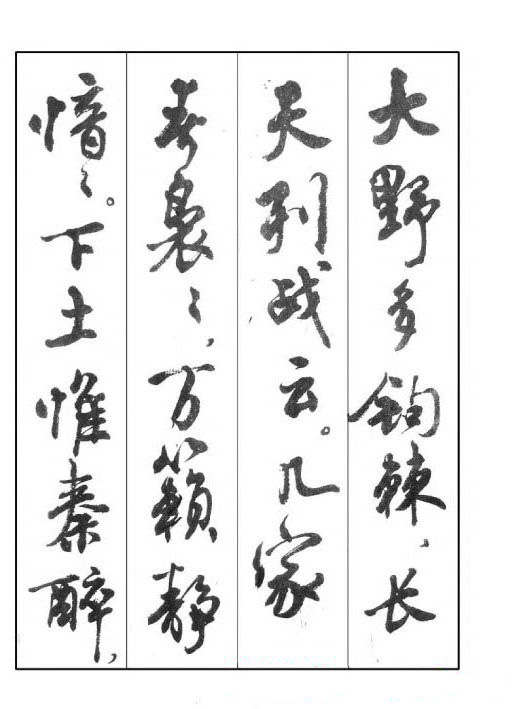 大野多钩棘，长
天列战云。几家
春袅袅，万籁静
愔愔。下土惟秦醉，